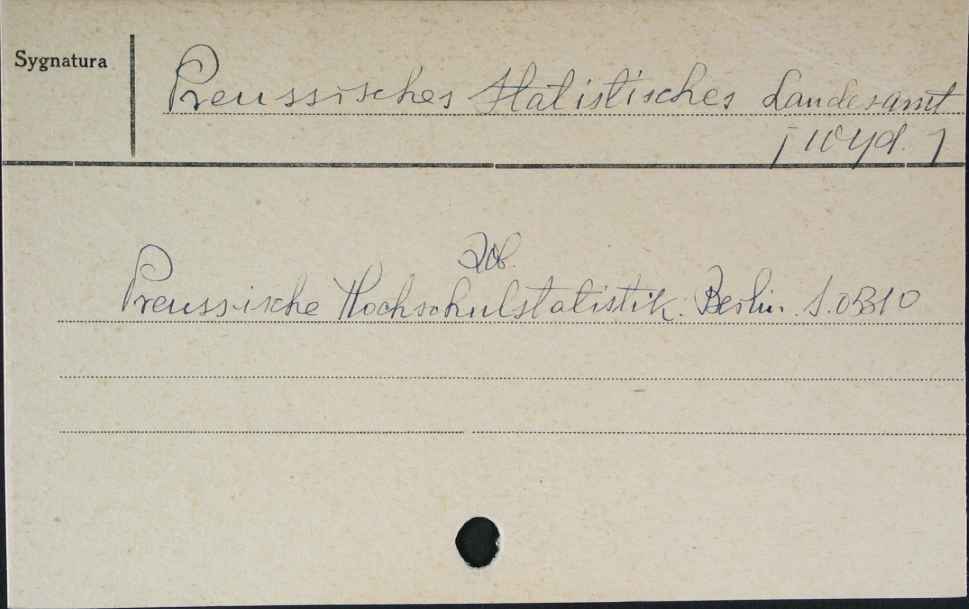 Sygnatura
Preussisches Statistisches Landesamt
[wyd.]
Zob.
Preussische Hochschulstatistik. Berlin.